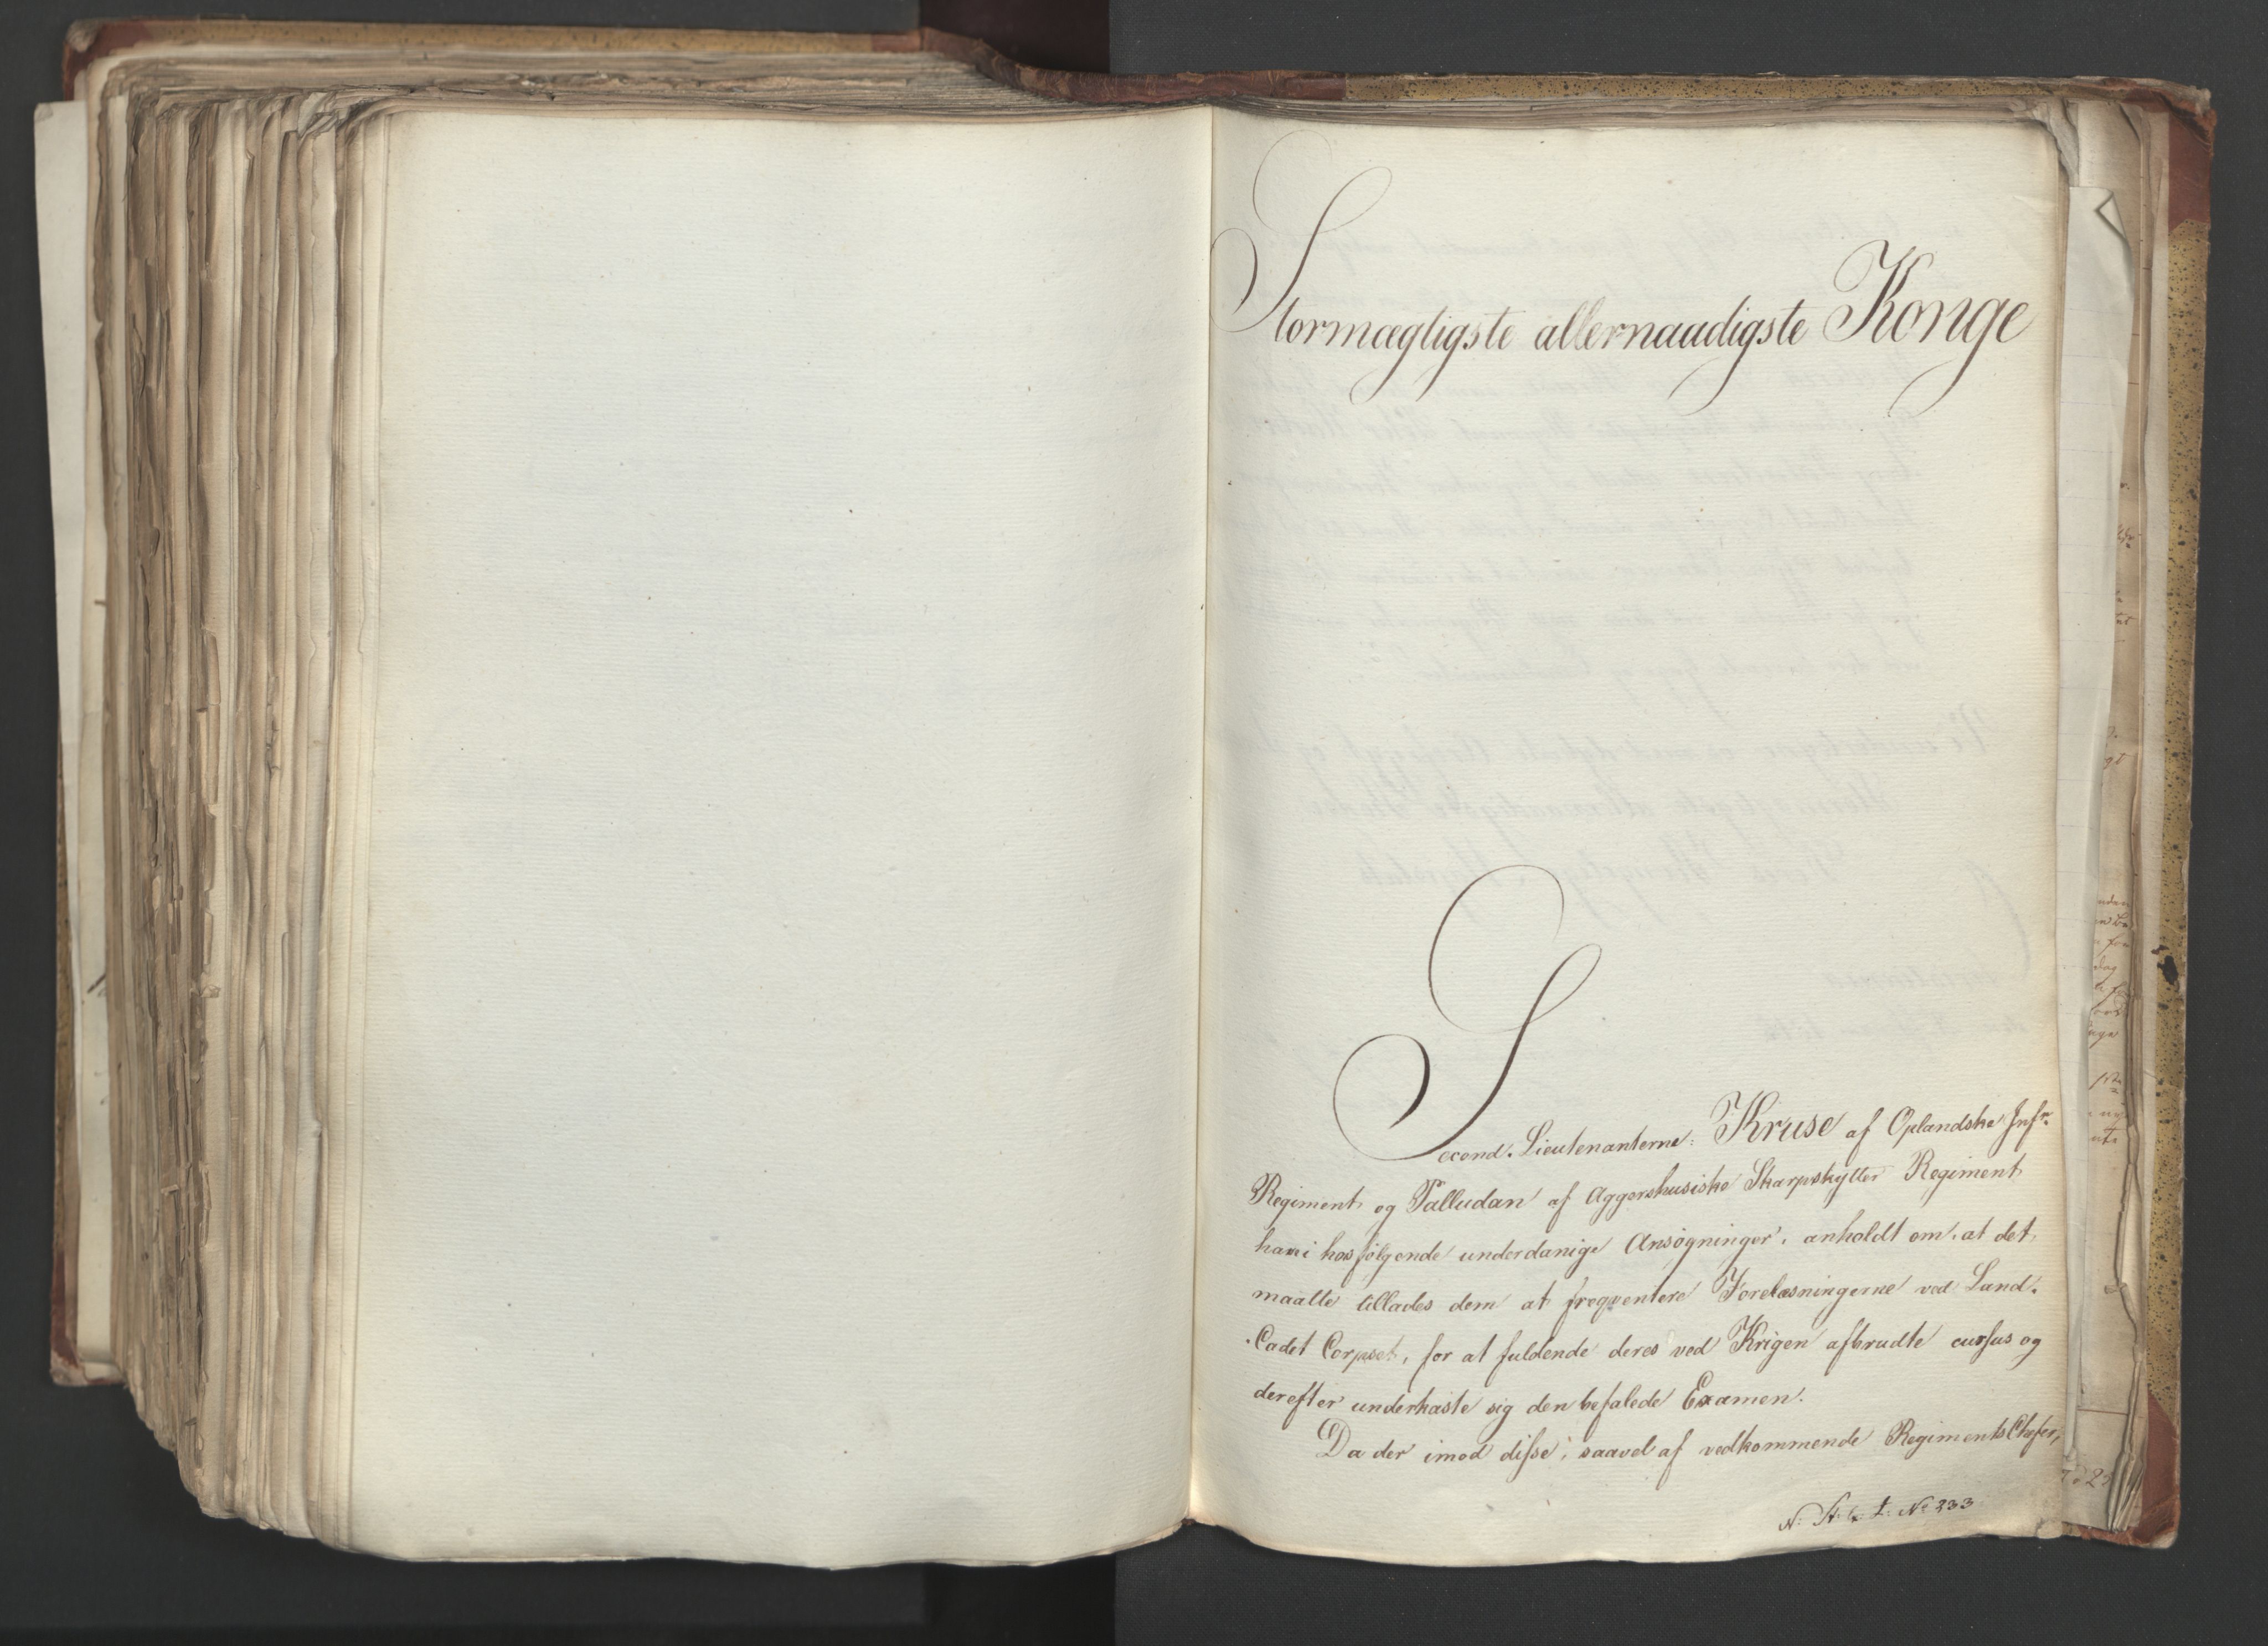 Stormægtigste allernaadigste Konge
Second. Lieutenanterne: Kruse af Oplandske Infr
Regiment og Palludan af Aggershusiske Skarpskytter Regiment
have i hosfølgende underdanige Ansøgninger, anholdt om, at det
maatte tillades dem at freqventere Forelæsningerne ved Land.
.Cadet Corpset, for at fuldende deres ved Krigen afbrudte cursus og
derefter underkaste sig den befalede Examen.
Da der imod disse, saavel af vedkommende Regiments Chefer,
No 233